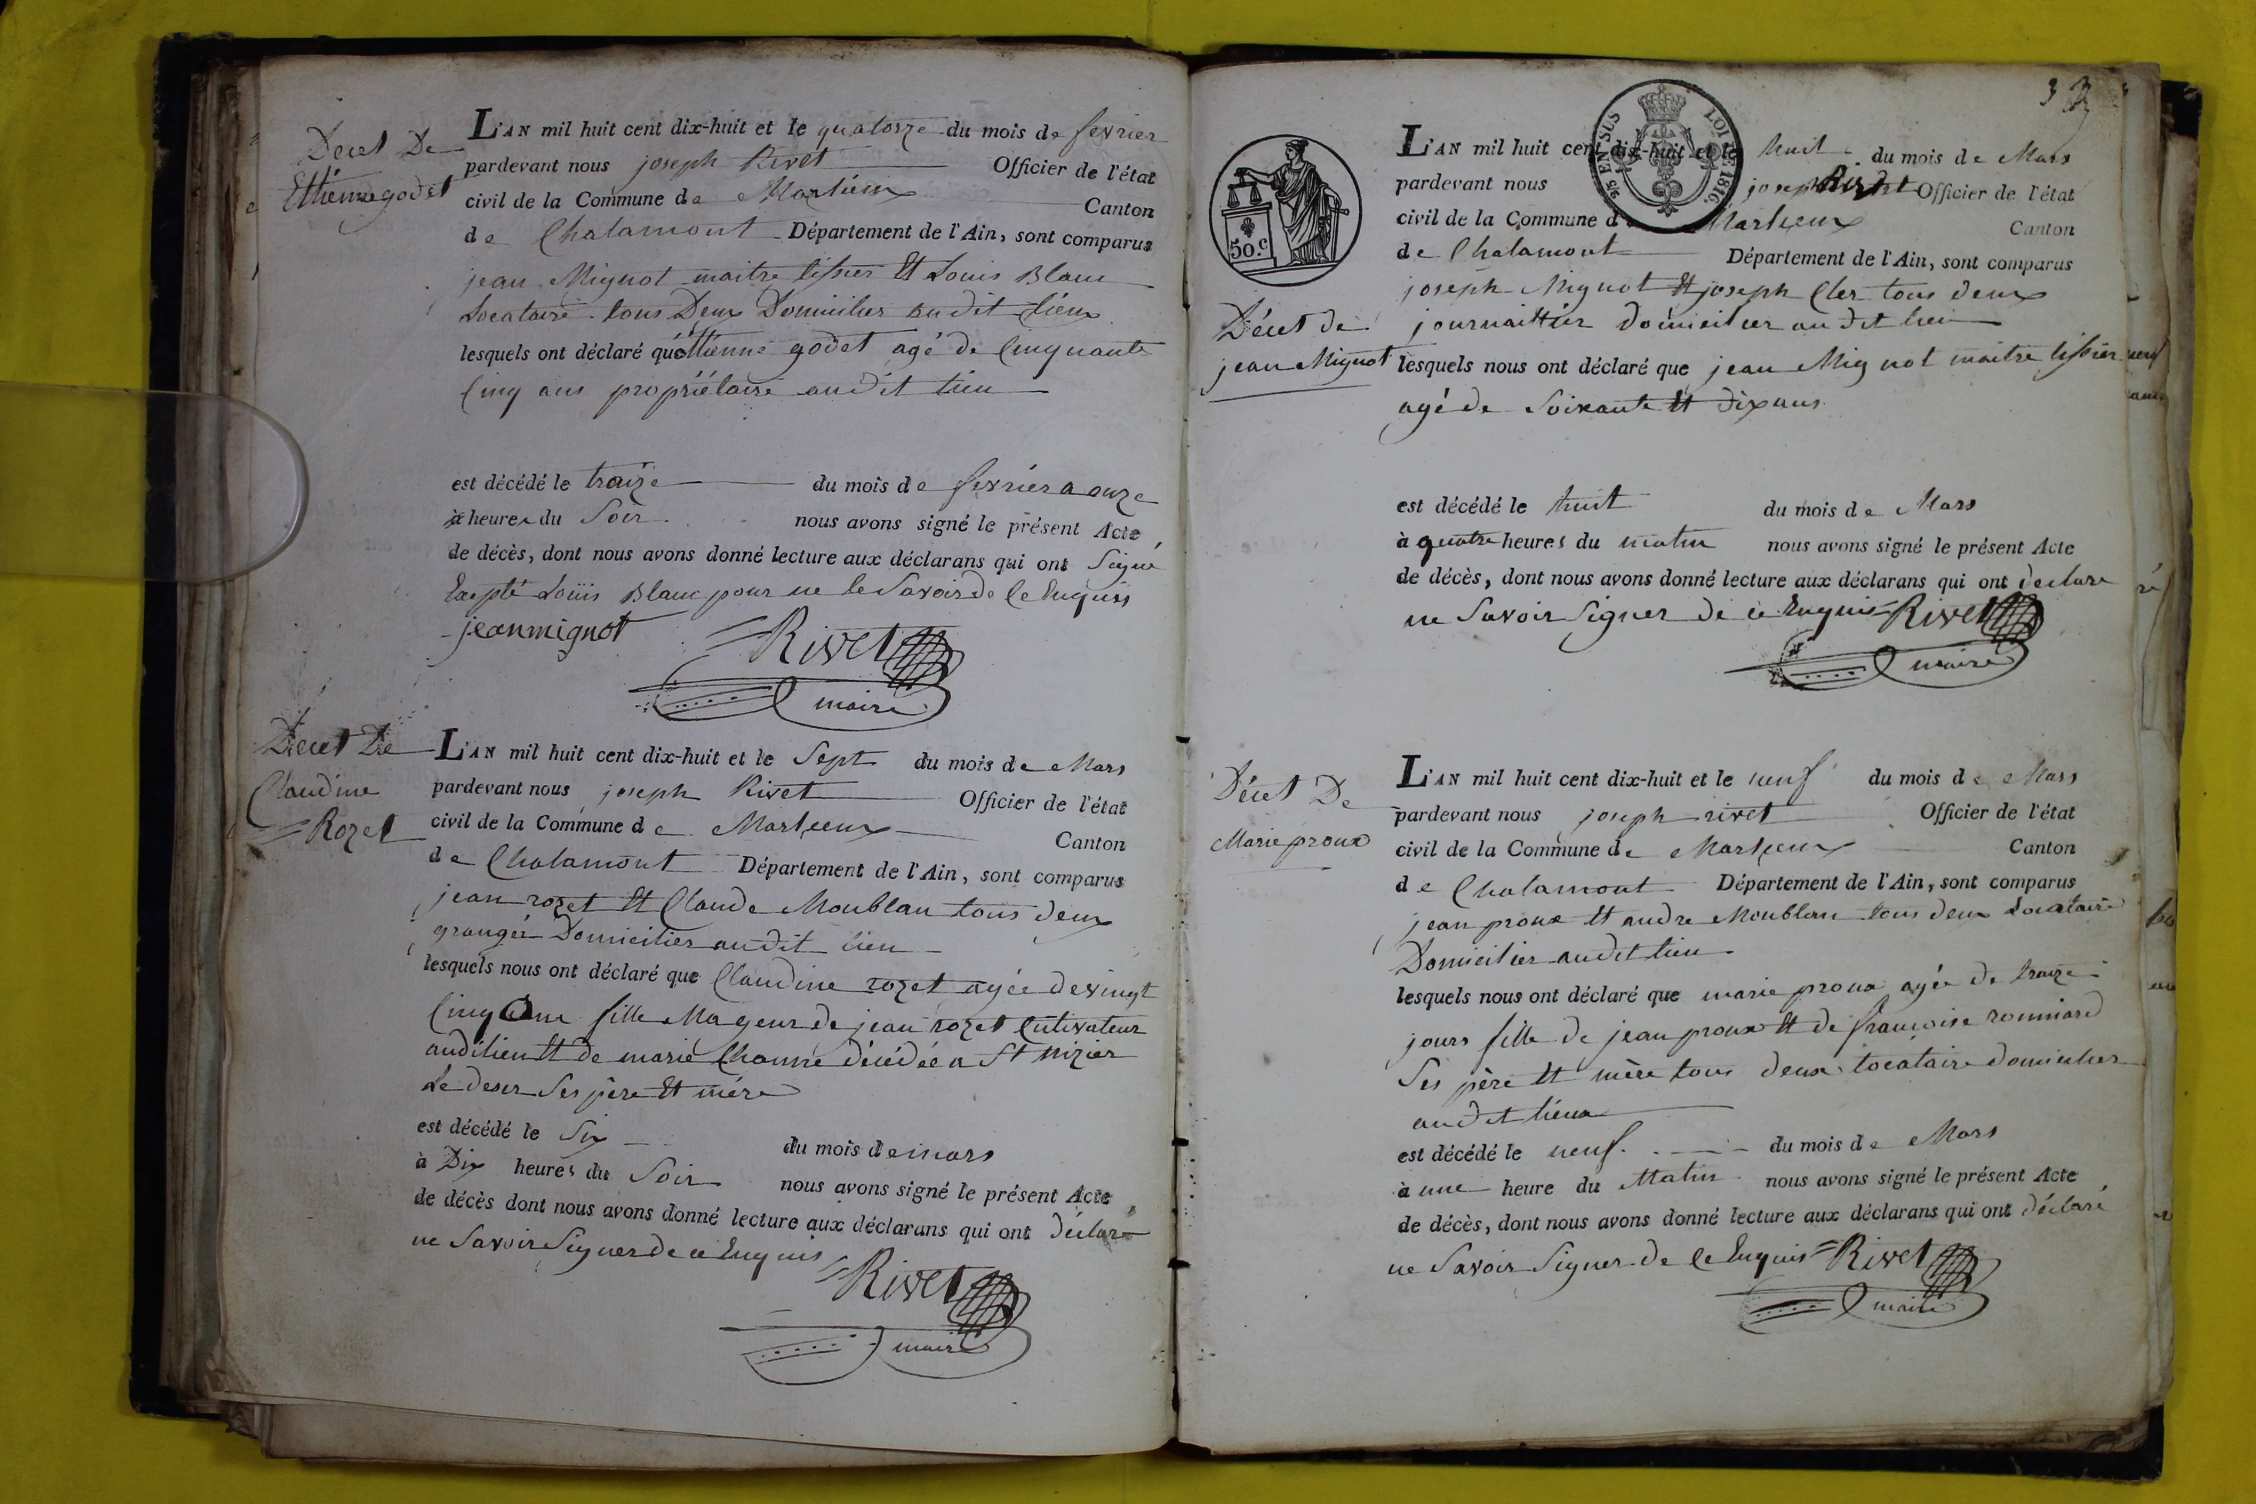 Decet De
Ettienne godet
L'AN mil huit cent dix-huit et le quatorze du mois de fevrier
pardevant nous joseph Rivet Officier de l'état
civil de la Commune de Marlieux Canton
de Chalamont Département de l'Ain, sont comparus
jean Mignot maitre tissier Et Louis Blanc
Locataire tous Deux Domicilier au dit lieux
lesquels ont déclaré qu'éttienne godet agé de Cinquante
Cinq ans propriétaire au dit lieu
est décédé le traize du mois de fevriér a onze
à heures du Soir nous avons signé le présent Acte
de décès, dont nous avons donné lecture aux déclarans qui ont Signé
Excepté Louis Blanc pour ne le Savoir de Ce Enquis
jean mignot
Rivet
maire
Decet De
Claudine
Rozet
L'AN mil huit cent dix-huit et le Sept du mois de Mars
pardevant nous joseph Rivet Officier de l'état
civil de la Commune de Marlieux Canton
de Chalamont Département de l'Ain, sont comparus
jean rozet Et Claude Moublan tous deux
grangér Domicilier au dit lieu
lesquels nous ont déclaré que Claudine rozet agée de vingt
Cinq Ans fille Mageur de jean rozet Cultivateur
audi lieu Et de marie Channe décédée a St nizier
Le deser Ses père Et mére
est décédé le Six du mois de mars
à Dix heures du Soir nous avons signé le présent Acte
de décès dont nous avons donné lecture aux déclarans qui ont déclaré
ne Savoir Signer de ce Enquis
Rivet
maire
33
50.c
25 EN SUS
LOI DE 1816.
Décet de
jean Mignot
L'AN mil huit cent dix-huit et le huit du mois de Mars
pardevant nous joseph Rivet Officier de l'état
civil de la Commune de Marlieux Canton
de Chalamont Département de l'Ain, sont comparus
joseph Mignot Et joseph Cler tous deux
journaillier domicilier au dit lieu
lesquels nous ont déclaré que jean Mignot maitre tissier
agé de Soixante Et dix ans
est décédé le huit du mois de Mars
à quatre heures du matin nous avons signé le présent Acte
de décès, dont nous avons donné lecture aux déclarans qui ont declare
ne Savoir Signer de ce Enquis Rivet
maire
Décet De
Marie proux
L'AN mil huit cent dix-huit et le neuf du mois de Mars
pardevant nous joseph rivet Officier de l'état
civil de la Commune de Marlieux Canton
de Chalamont Département de l'Ain, sont comparus
jean proux Et andre Moublan tous deux Locataire
Domicilier au dit lieu
lesquels nous ont déclaré que marie proux agée de traize
jours fille de jean proux Et de francoise ronniard
Ses père Et mère tous deux locátaire domicilier
au dit lieux
est décédé le neuf. du mois de Mars
à une heure du Matin nous avons signé le présent Acte
de décès, dont nous avons donné lecture aux déclarans qui ont déclaré
ne Savoir Signer de Ce Enquis Rivet
maire